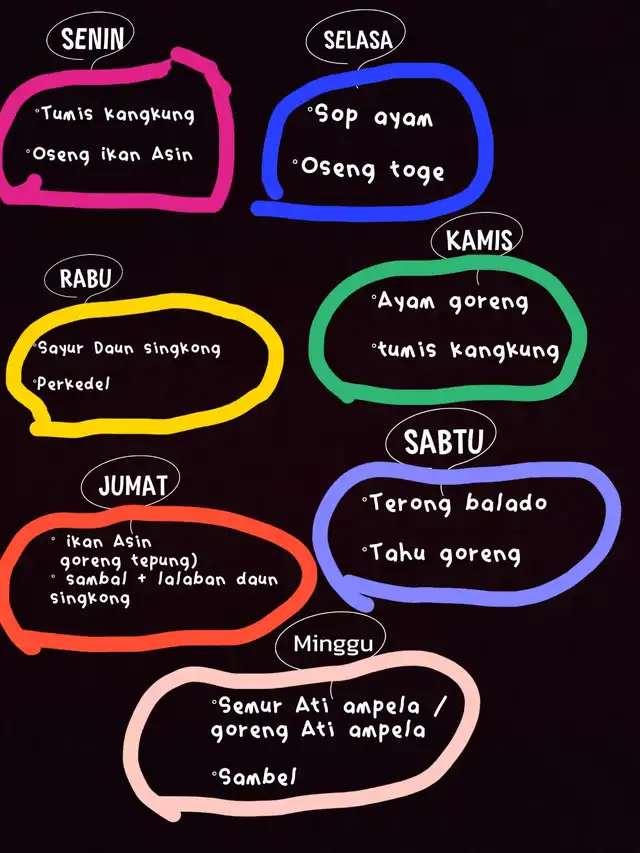 SENIN
°Tumis kangkung
°Oseng ikan Asin
SELASA
°Sop ayam
°Oseng toge
RABU
°Sayur Daun singkong
°Perkedel
KAMIS
°Ayam goreng
°tumis kangkung
JUMAT
° ikan Asin
goreng tepung)
° sambal + lalaban daun
singkong
SABTU
°Terong balado
°Tahu goreng
Minggu
°Semur Ati ampela /
goreng Ati ampela
°Sambel